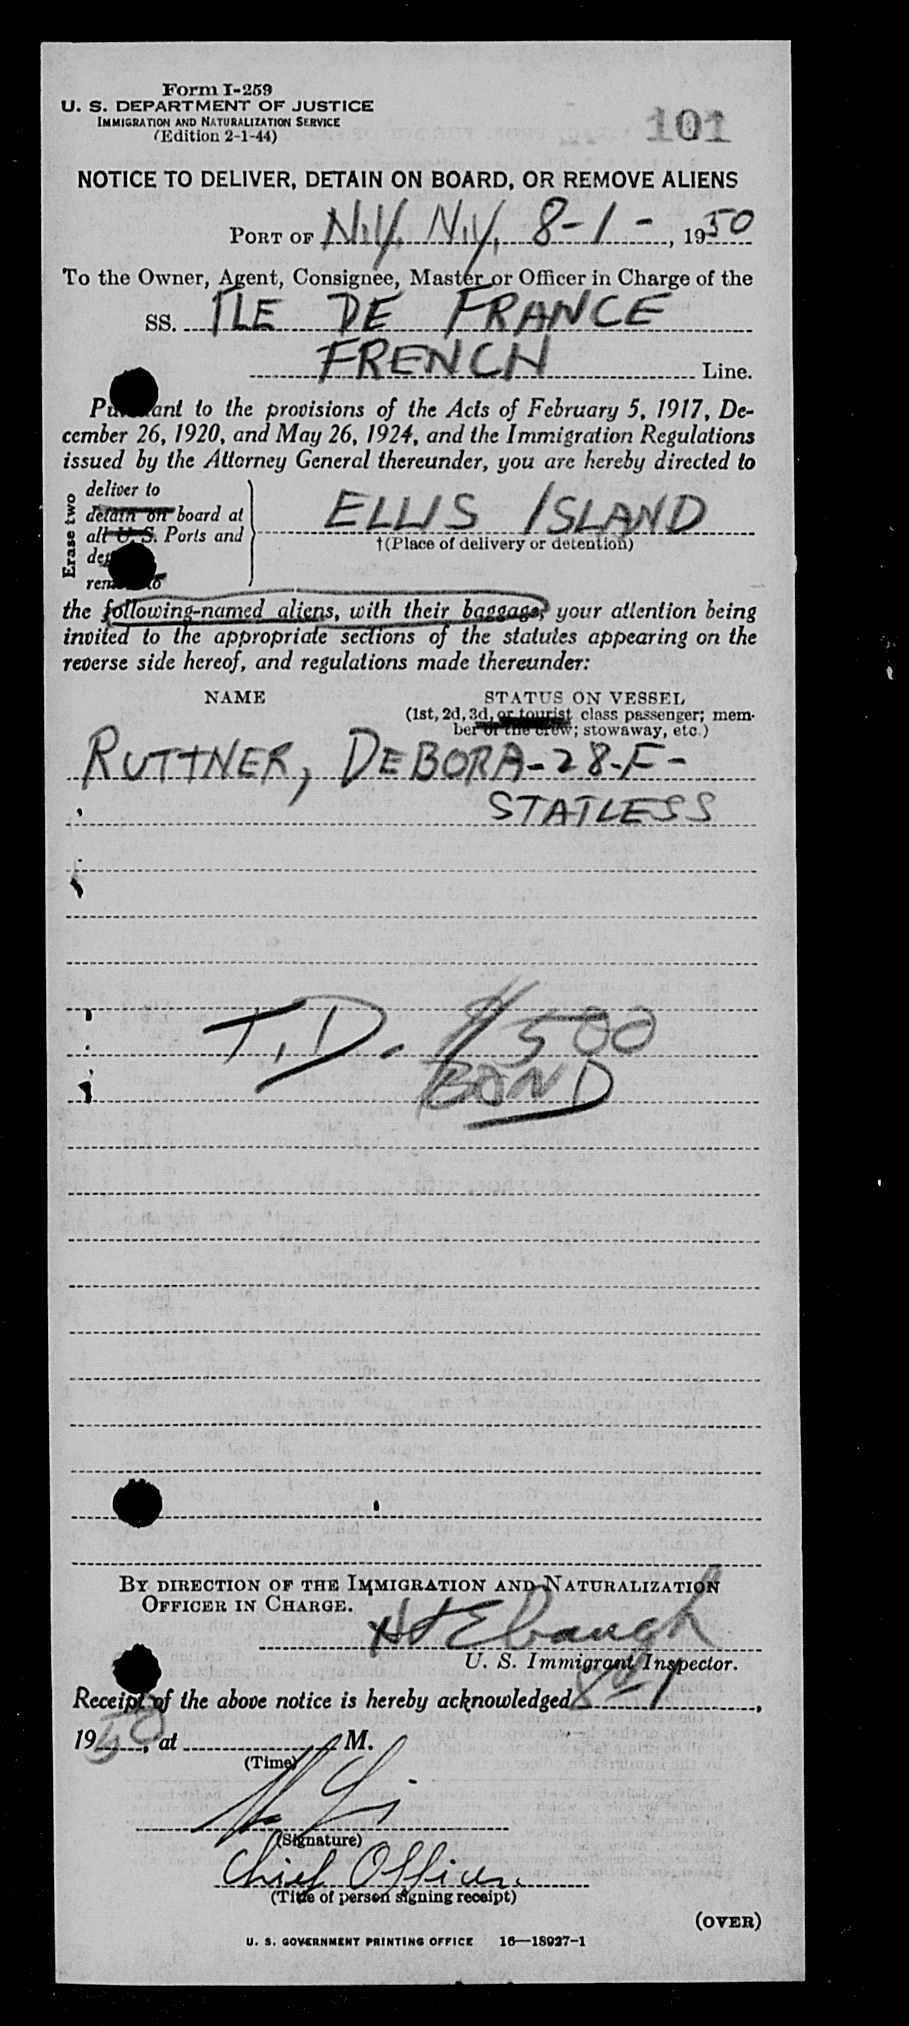 Form I-259
U. S. DEPARTMENT OF JUSTICE
IMMIGRATION AND NATURALIZATION SERVICE
(Edition 2-1-44)
101
NOTICE TO DELIVER, DETAIN ON BOARD, OR REMOVE ALIENS
PORT OF N.Y. N.Y. 8-1-, 1950
To the Owner, Agent, Consignee, Master or Officer in Charge of the
SS. ILE DE FRANCE
FRENCH Line.
Pursuant to the provisions of the Acts of February 5, 1917, De-
cember 26, 1920, and May 26, 1924, and the Immigration Regulations
issued by the Attorney General thereunder, you are hereby directed to
Erase two
deliver to
detain on board at
all U. S. Ports and
ELLIS ISLAND
†(Place of delivery or detention)
the following-named aliens, with their baggage, your attention being
invited to the appropriate sections of the statutes appearing on the
reverse side hereof, and regulations made thereunder:
NAME STATUS ON VESSEL
(1st, 2d, 3d, or tourist class passenger; mem-
ber of the crew; stowaway, etc.)
RUTTNER, DEBORA-28-F-
STATLESS
T.D. $500
BOND
BY DIRECTION OF THE IMMIGRATION AND NATURALIZATION
OFFICER IN CHARGE.
U. S. Immigrant Inspector.
Receipt of the above notice is hereby acknowledged 8-1,
1950, at M.
(Time)
(Signature)
Chief Officer.
(Title of person signing receipt)
(OVER)
U. S. GOVERNMENT PRINTING OFFICE 16—18927-1